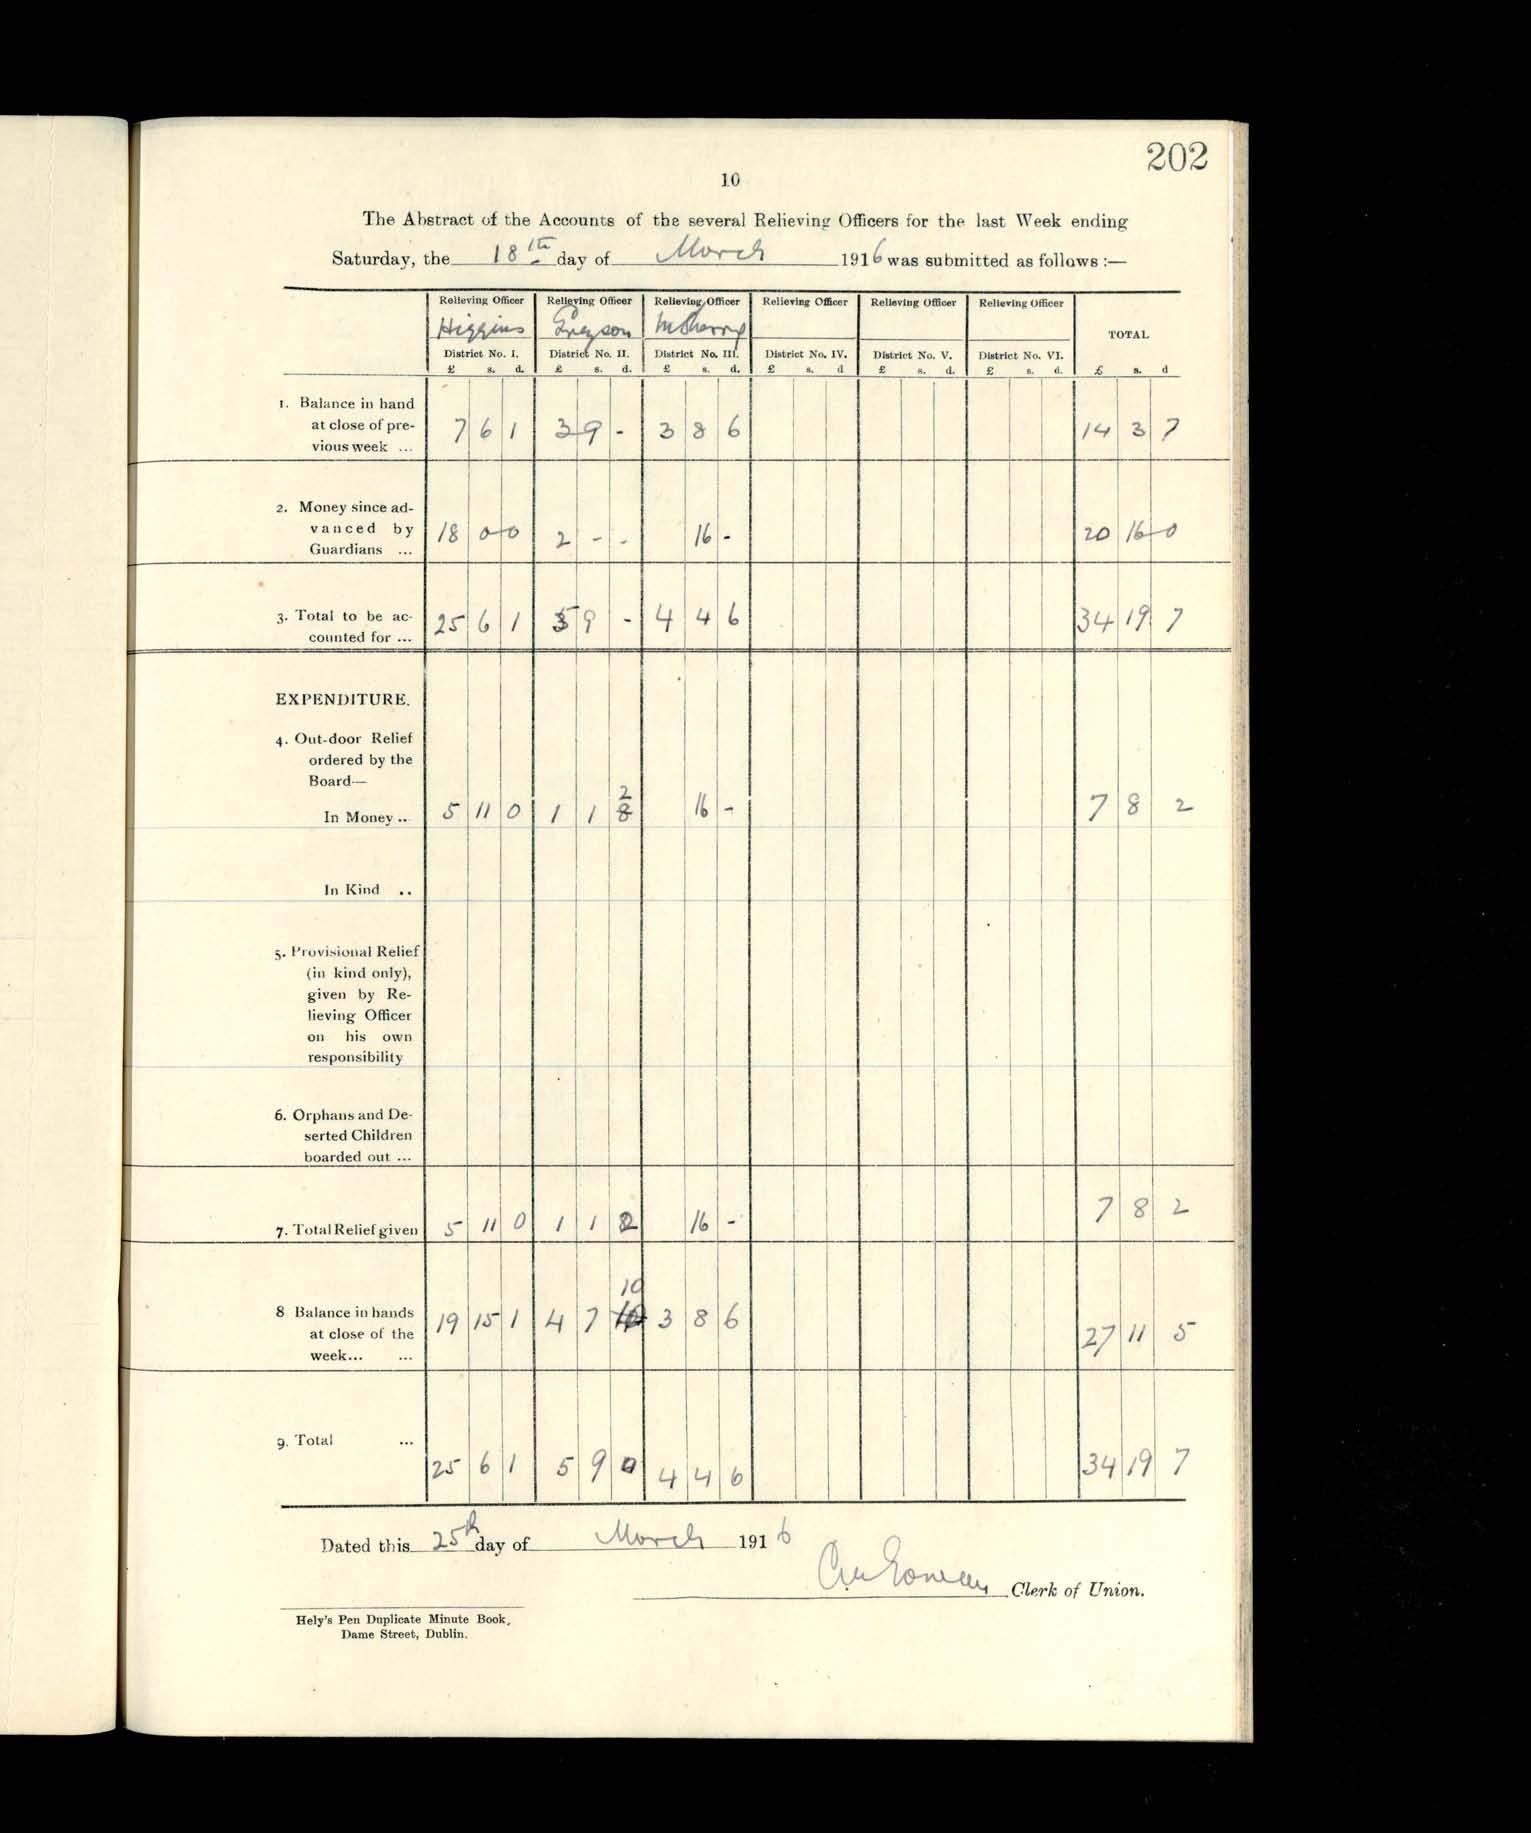 202
10
The Abstract of the Accounts of the several Relieving Officers for the last Week ending
Saturday, the 18th day of March 1916 was submitted as follows :—
Relieving Officer Relieving Officer Relieving Officer Relieving Officer Relieving Officer Relieving Officer
Higgins Greyson McSherry TOTAL
District No. I. District No. II. District No. III. District No. IV. District No. V. District No. VI.
£ s. d. £ s. d. £ s. d. £ s. d £ s. d. £ s. d. £ s. d
1. Balance in hand
at close of pre-
vious week ... 7 6 1 3 9 - 3 8 6 14 3 7
2. Money since ad-
vanced by
Guardians ... 18 0 0 2 - - 16 - 20 16 0
3. Total to be ac-
counted for ... 25 6 1 5 9 - 4 4 6 34 19 7
EXPENDITURE.
4. Out-door Relief
ordered by the
Board—
2
In Money .. 5 11 0 1 1 8 16 - 7 8 2
In Kind ..
5. Provisional Relief
(in kind only),
given by Re-
lieving Officer
on his own
responsibility
6. Orphans and De-
serted Children
boarded out ...
7. Total Relief given 5 11 0 1 1 2 16 - 7 8 2
8 Balance in hands
at close of the
week... ... 19 15 1 4 7 10 3 8 6 27 11 5
9. Total ... 25 6 1 5 9 0 4 4 6 34 19 7
Dated this 25th day of March 1916
Clerk of Union.
Hely's Pen Duplicate Minute Book,
Dame Street, Dublin.